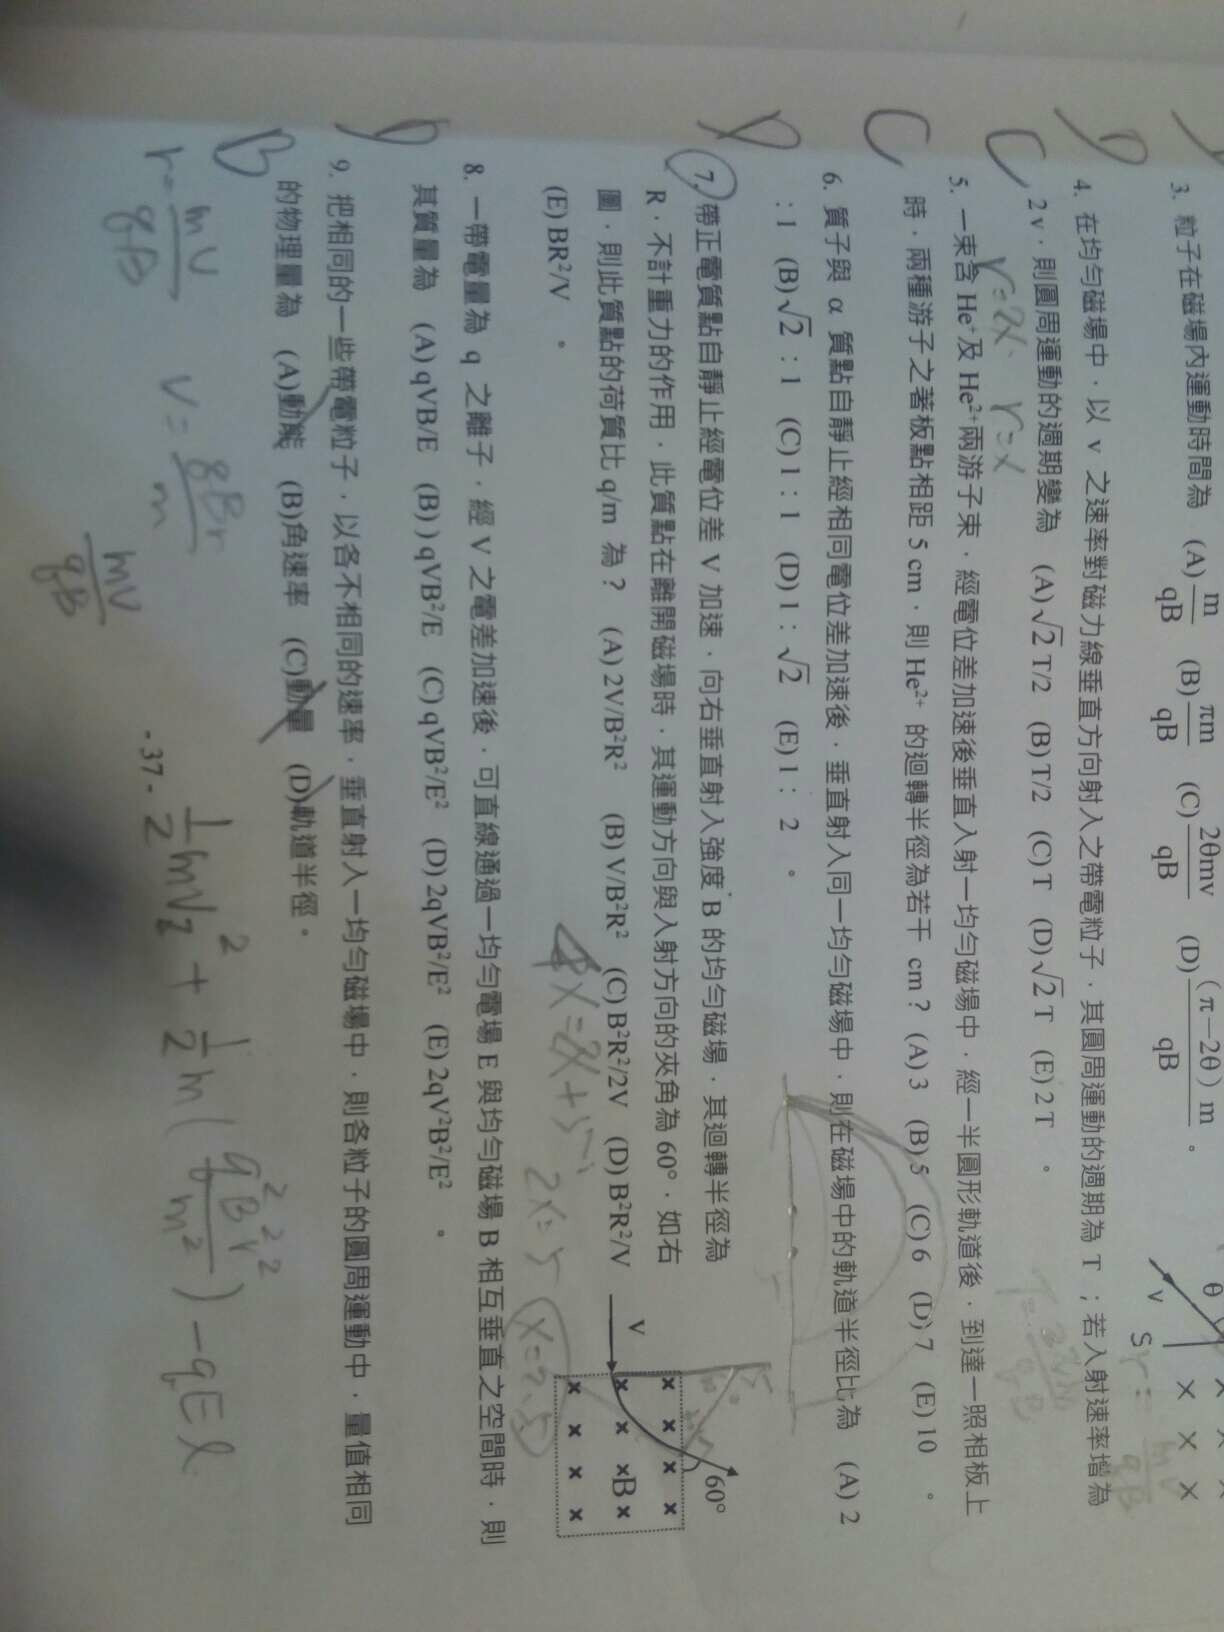 3. 粒子在磁場內運動時間為 (A) m/qB (B) πm/qB (C) 2θmv/qB (D) (π−2θ)m/qB 。
θ
v
S
D
4. 在均勻磁場中，以 v 之速率對磁力線垂直方向射入之帶電粒子，其圓周運動的週期為 T；若入射速率增為
C
2v，則圓周運動的週期變為 (A)√2 T/2 (B)T/2 (C)T (D)√2 T (E)2T 。
5. 一束含 He⁺及 He²⁺兩游子束，經電位差加速後垂直入射一均勻磁場中，經一半圓形軌道後，到達一照相板上
C
時，兩種游子之著板點相距 5 cm，則 He²⁺ 的迴轉半徑為若干 cm？ (A)3 (B)5 (C)6 (D)7 (E)10 。
6. 質子與 α 質點自靜止經相同電位差加速後，垂直射入同一均勻磁場中，則在磁場中的軌道半徑比為 (A)2
D
：1 (B)√2：1 (C)1：1 (D)1：√2 (E)1：2 。
7. 帶正電質點自靜止經電位差 V 加速，向右垂直射入強度 B 的均勻磁場，其迴轉半徑為
R，不計重力的作用，此質點在離開磁場時，其運動方向與入射方向的夾角為 60°，如右
圖，則此質點的荷質比 q/m 為？ (A)2V/B²R² (B)V/B²R² (C)B²R²/2V (D)B²R²/V
(E)BR²/V 。
V
×B×
60°
8. 一帶電量為 q 之離子，經 V 之電差加速後，可直線通過一均勻電場 E 與均勻磁場 B 相互垂直之空間時，則
D
其質量為 (A)qVB/E (B))qVB²/E (C)qVB²/E² (D)2qVB²/E² (E)2qV²B²/E² 。
9. 把相同的一些帶電粒子，以各不相同的速率，垂直射入一均勻磁場中，則各粒子的圓周運動中，量值相同
B
的物理量為 (A)動能 (B)角速率 (C)動量 (D)軌道半徑。
r=mv/qB
v=qBr/m
mv/qB
-37-